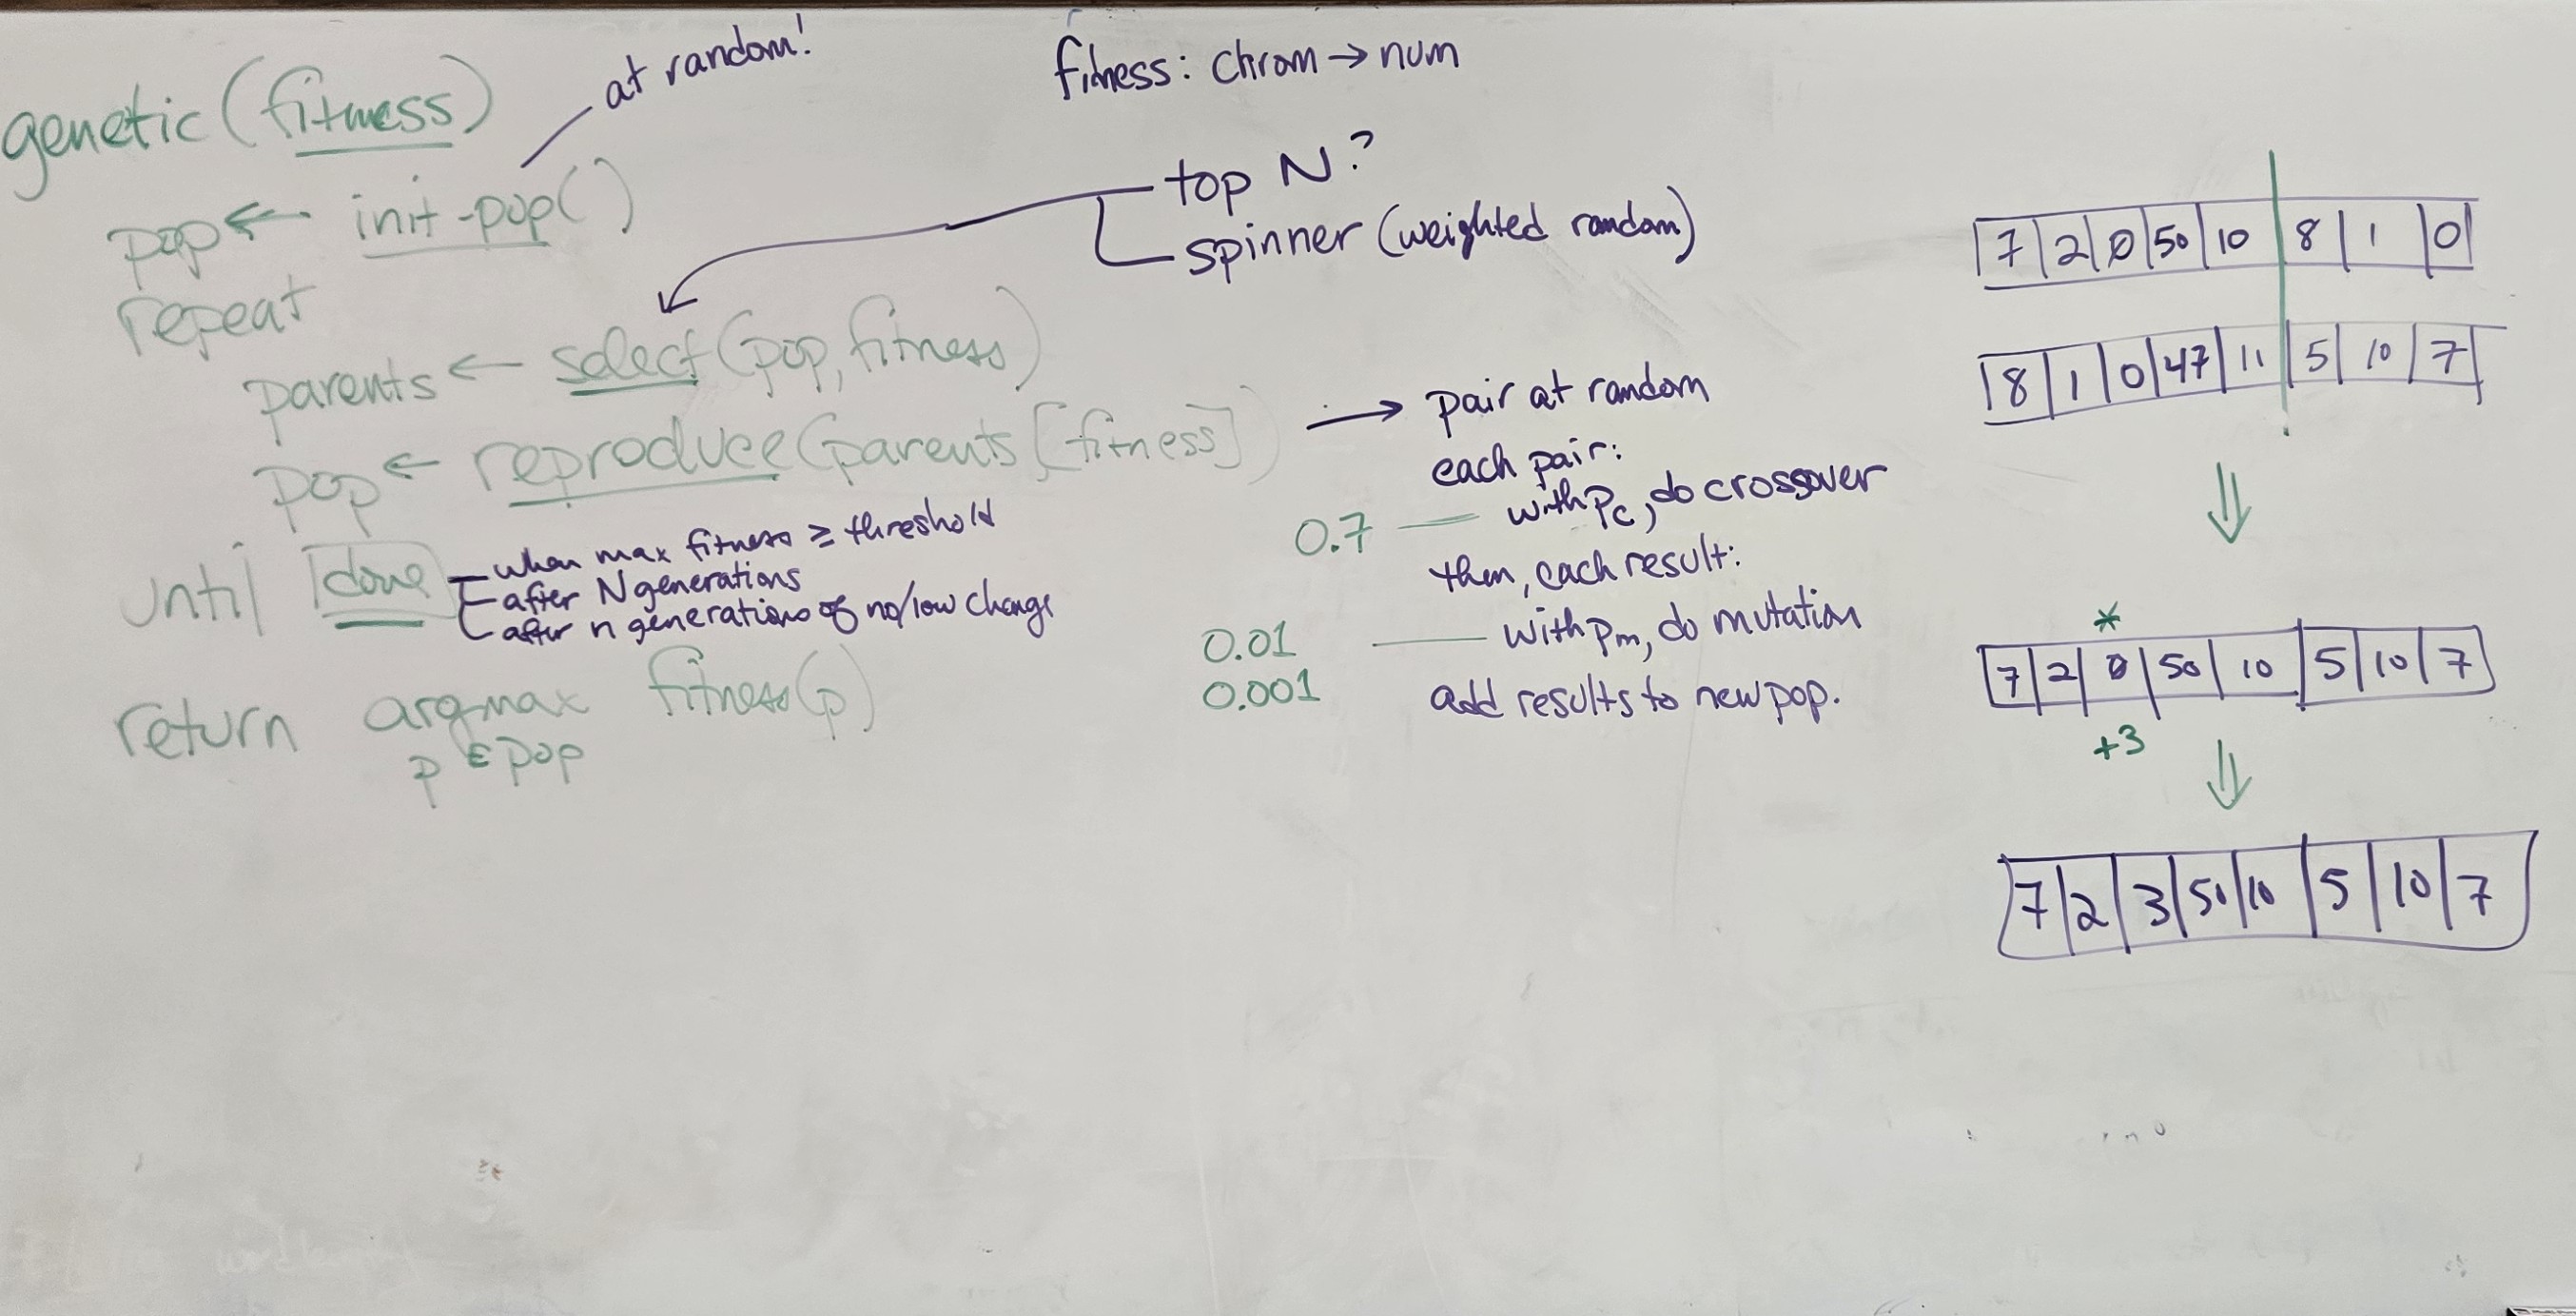 genetic (fitness)
at random!
pop ← init-pop()
repeat
parents ← select (pop, fitness)
pop ← reproduce (parents [fitness])
until done
when max fitness ≥ threshold
after N generations
after n generations of no/low change
return argmax fitness(p)
p ∈ pop
fitness: chrom → num
top N?
spinner (weighted random)
→ pair at random
each pair:
0.7 — with Pc, do crossover
then, each result:
0.01 — with Pm, do mutation
0.001
add results to new pop.
7 2 0 50 10 8 1 0
8 1 0 47 11 5 10 7
⇓
*
7 2 0 50 10 5 10 7
+3
⇓
7 2 3 50 10 5 10 7